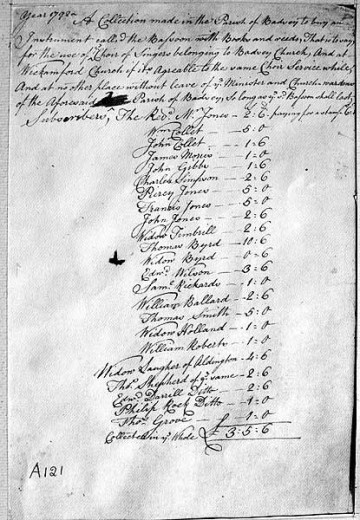 Year 1792 A Collection made in the Parish of Badsey to buy an
Instrument call'd the Bassoon with Books and reeds that is to say
for the use of yᵉ Choir of Singers belonging to Badsey Church, And at
Wickamford Church if its Agreable to the same Choir Service while
And at no other place without leave of yᵉ Minister and Church wardens
of the Aforesaid Parish of Badsey, So long as yᵉ sᵈ Bassoon shall last
Subscribers, The Revᵈ M. Jones - 2:6 paying for a stamp
Wm Collet - 5:0
John Collet - 1:6
James Moris - 1:0
John Gibbs - 1:6
Charles Simpson - 2:6
Percy Jones - 5:0
Francis Jones - 5:0
John Jones - 2:6
Widow Timbrill - 2:6
Thomas Byrd - 10:6
Widow Byrd - 0:6
Edwᵈ Wilson - 3:6
Samˡ Rickards - 1:0
William Ballard - 2:6
Thomas Smith - 5:0
Widow Holland - 1:0
William Roberts - 1:0
Widow Laugher of Aldington - 4:6
Thoˢ Shepherd of yᵉ same - 2:6
Edwᵈ Darrill Ditto - 2:6
Philip Rock Ditto - 1:0
Thoˢ Grove - 1:0
Collected in yᵉ Whole £ 3:5:6
A121